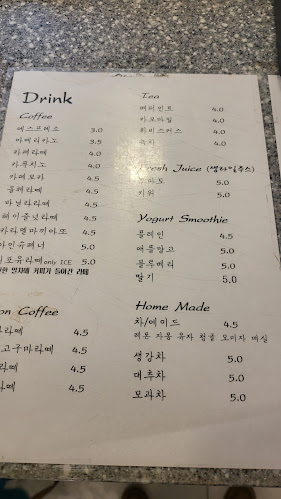 Drink
Coffee
에스프레소 3.0
아메리카노 3.5
카페라떼 4.0
카푸치노 4.0
카페모카 4.5
돌체라떼 4.5
바닐라라떼 4.5
헤이즐넛라떼 4.5
카라멜마끼아또 4.5
아인슈페너 5.0
포유라떼 only ICE 5.0
커피가 들어간 라떼
Coffee
라떼 4.5
고구마라떼 4.5
라떼 4.5
라떼 4.5
Tea
페퍼민트 4.0
카모마일 4.0
히비스커스 4.0
녹차 4.0
Fresh Juice (생과일쥬스)
토마토 5.0
키위 5.0
Yogurt Smoothie
플레인 4.5
애플망고 5.0
블루베리 5.0
딸기 5.0
Home Made
차/에이드 4.5
레몬 자몽 유자 청귤 오미자 매실
생강차 5.0
대추차 5.0
모과차 5.0